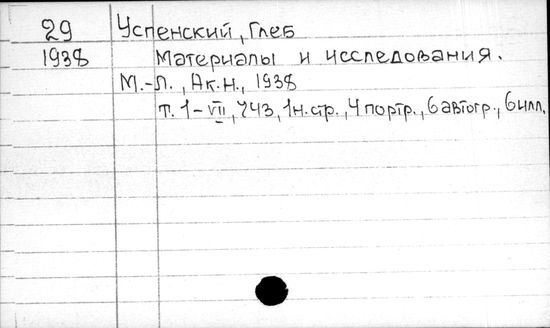 29 Успенский, Глеб
1938 Материалы и исследования.
М.-Л., Ак.Н., 1938
т. 1-VII, 743, 1н.стр., 4 портр., 6 автогр., 6 илл.